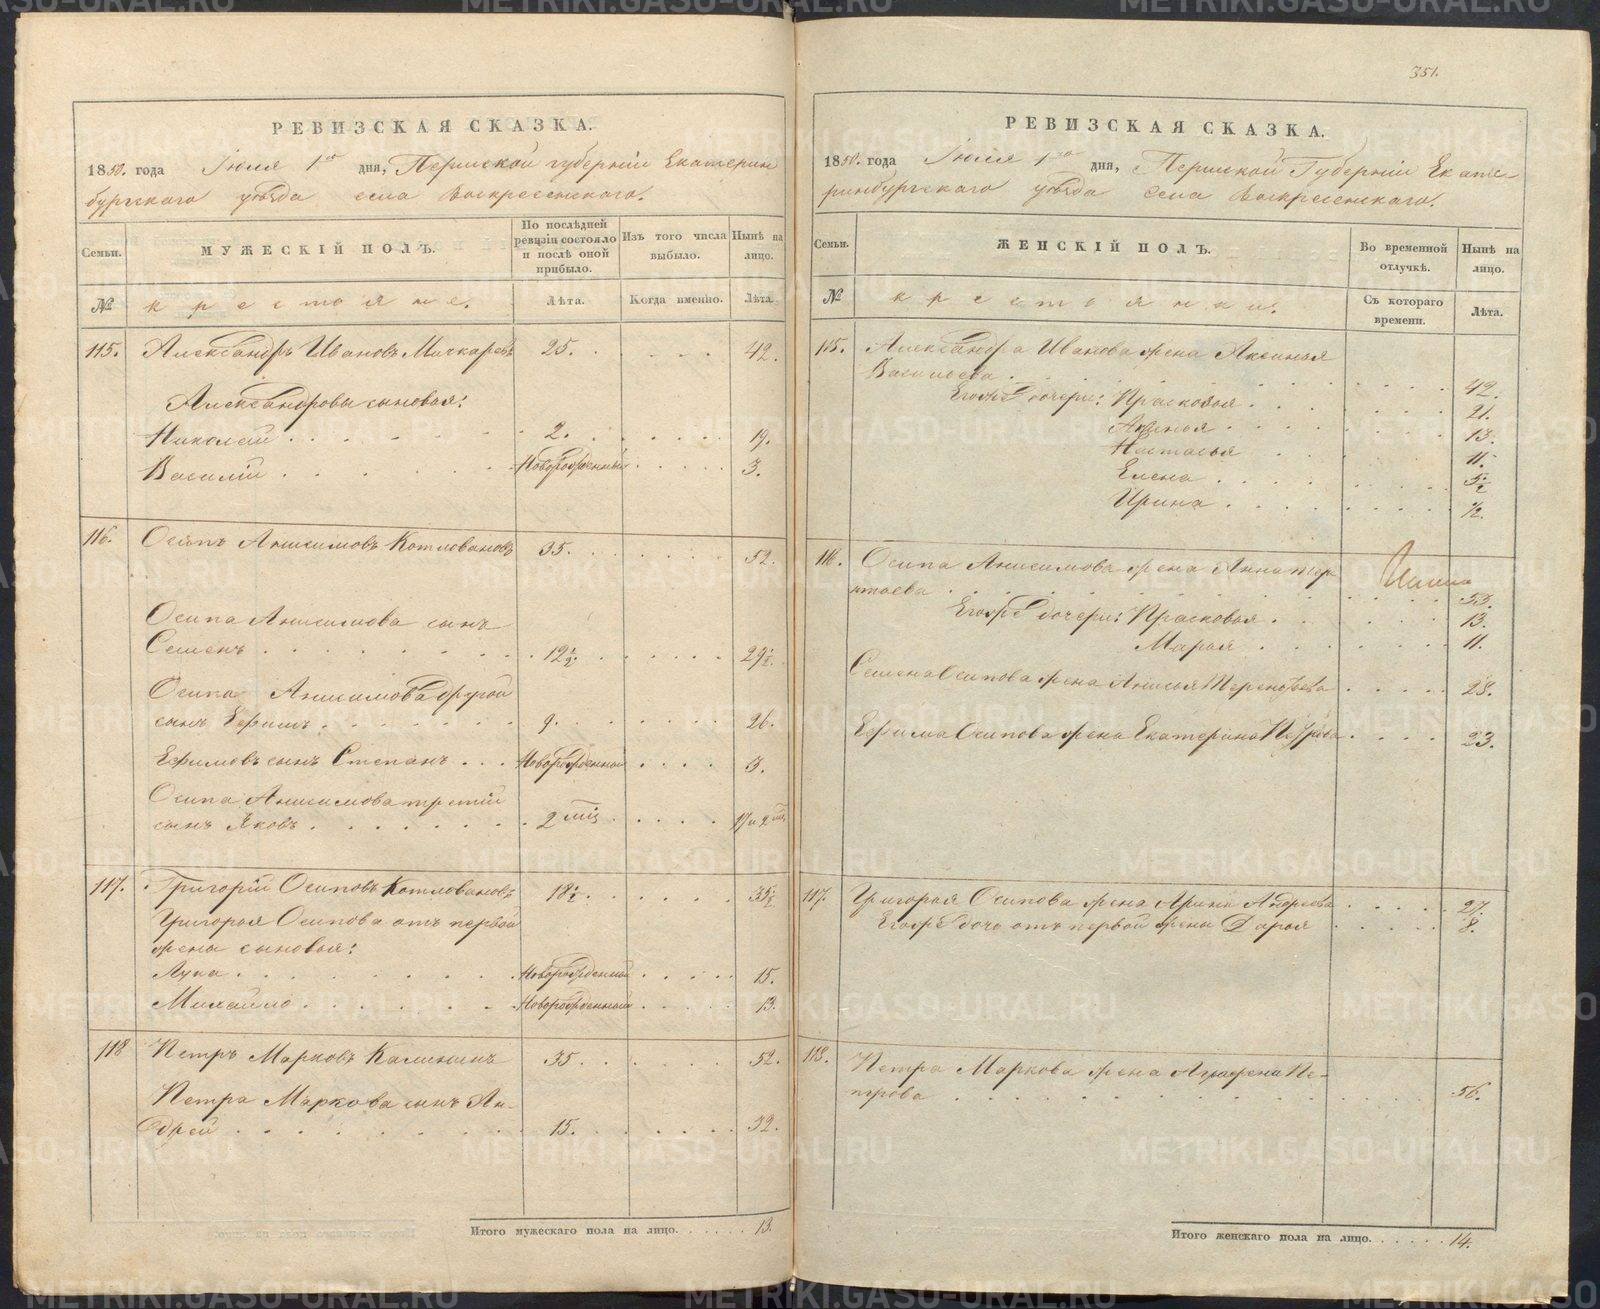 РЕВИЗСКАЯ СКАЗКА.
1850. года Іюля 1го дня, Пермской губерніи Екатерин
бургскаго уѣзда села Воскресенскаго.
Семьи.
МУЖЕСКІЙ ПОЛЪ.
По послѣдней ревизіи состояло и послѣ оной прибыло.
Изъ того числа выбыло.
Нынѣ на лицо.
№
крестьяне.
Лѣта.
Когда именно.
Лѣта.
115. Александръ Ивановъ Мичкаревъ 25. 42.
Александровы сыновья:
Николай 2. 19.
Василій Новорожденный 3.
116. Осипъ Анисимовъ Котловановъ 35. 52.
Осипа Анисимова сынъ
Семенъ 12½. 29½.
Осипа Анисимова другой
сынъ Ефимъ 9. 26.
Ефимовъ сынъ Степанъ Новорожденный 3.
Осипа Анисимова третій
сынъ Яковъ 2 мѣс. 17 и 2 мѣс
117. Григорій Осиповъ Котловановъ 18½. 35½
Григорья Осипова отъ первой
жены сыновья:
Лука Новорожденный 15.
Михайло Новорожденный 13.
118 Петръ Марковъ Калининъ 35. 52.
Петра Маркова сынъ Ан-
дрей 15. 32.
Итого мужескаго пола на лицо. 13.
351.
РЕВИЗСКАЯ СКАЗКА.
1850. года Іюля 1го дня, Пермской Губерніи Екате-
ринбургскаго уѣзда Села Воскресенскаго.
Семьи.
ЖЕНСКІЙ ПОЛЪ.
Во временной отлучкѣ.
Нынѣ на лицо.
№
крестьянки.
Съ котораго времени.
Лѣта.
115. Александра Иванова жена Аксинья
Васильева 42.
Егожъ дочери: Прасковья 21.
Анна 13.
Настасья 11.
Елена 5½
Ирина ½.
116. Осипа Анисимова жена Анна
53.
Егожъ дочери: Прасковья 13.
Марья 11.
Семена Осипова жена Анисья Терентьева 28.
Ефима Осипова жена Екатерина 23.
117. Григорья Осипова жена Арина Андреева 27.
Егожъ дочь отъ первой жены Дарья 8.
118. Петра Маркова жена Аграфена Пе-
трова 56.
Итого женскаго пола на лицо. 14.
METRIKI.GASO-URAL.RU